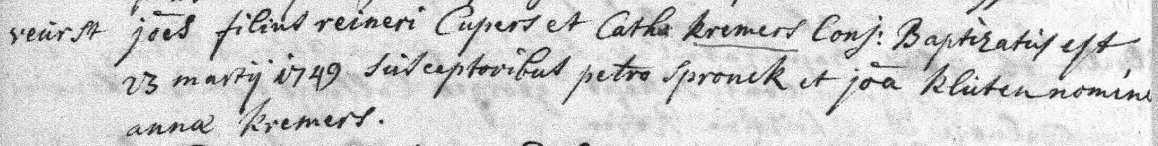 veurst joēs filius reineri Cupers et Cath: kremers Conj: Baptizatus est
23 martij 1749 susceptoribus petro spronck et joā klüten nomine
annæ kremers.